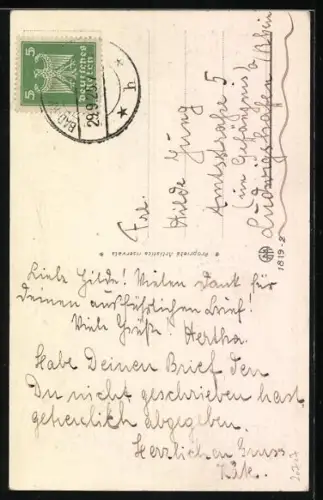 5 Deutsches Reich 5
BAD
29.9.25
* h *
Frl.
Hilde Jung
Amtsstraße 5
(im Gefängnis)
Ludwigshafen a/Rhein
Proprietà Artistica riservata
1819-2
Liebe Hilde! Vielen Dank für
Deinen ausführlichen Brief!
Viele Grüße! Hertha.
Habe Deinen Brief den
Du nicht geschrieben hast
getreulich abgegeben.
Herzlichen Gruss
Käte.